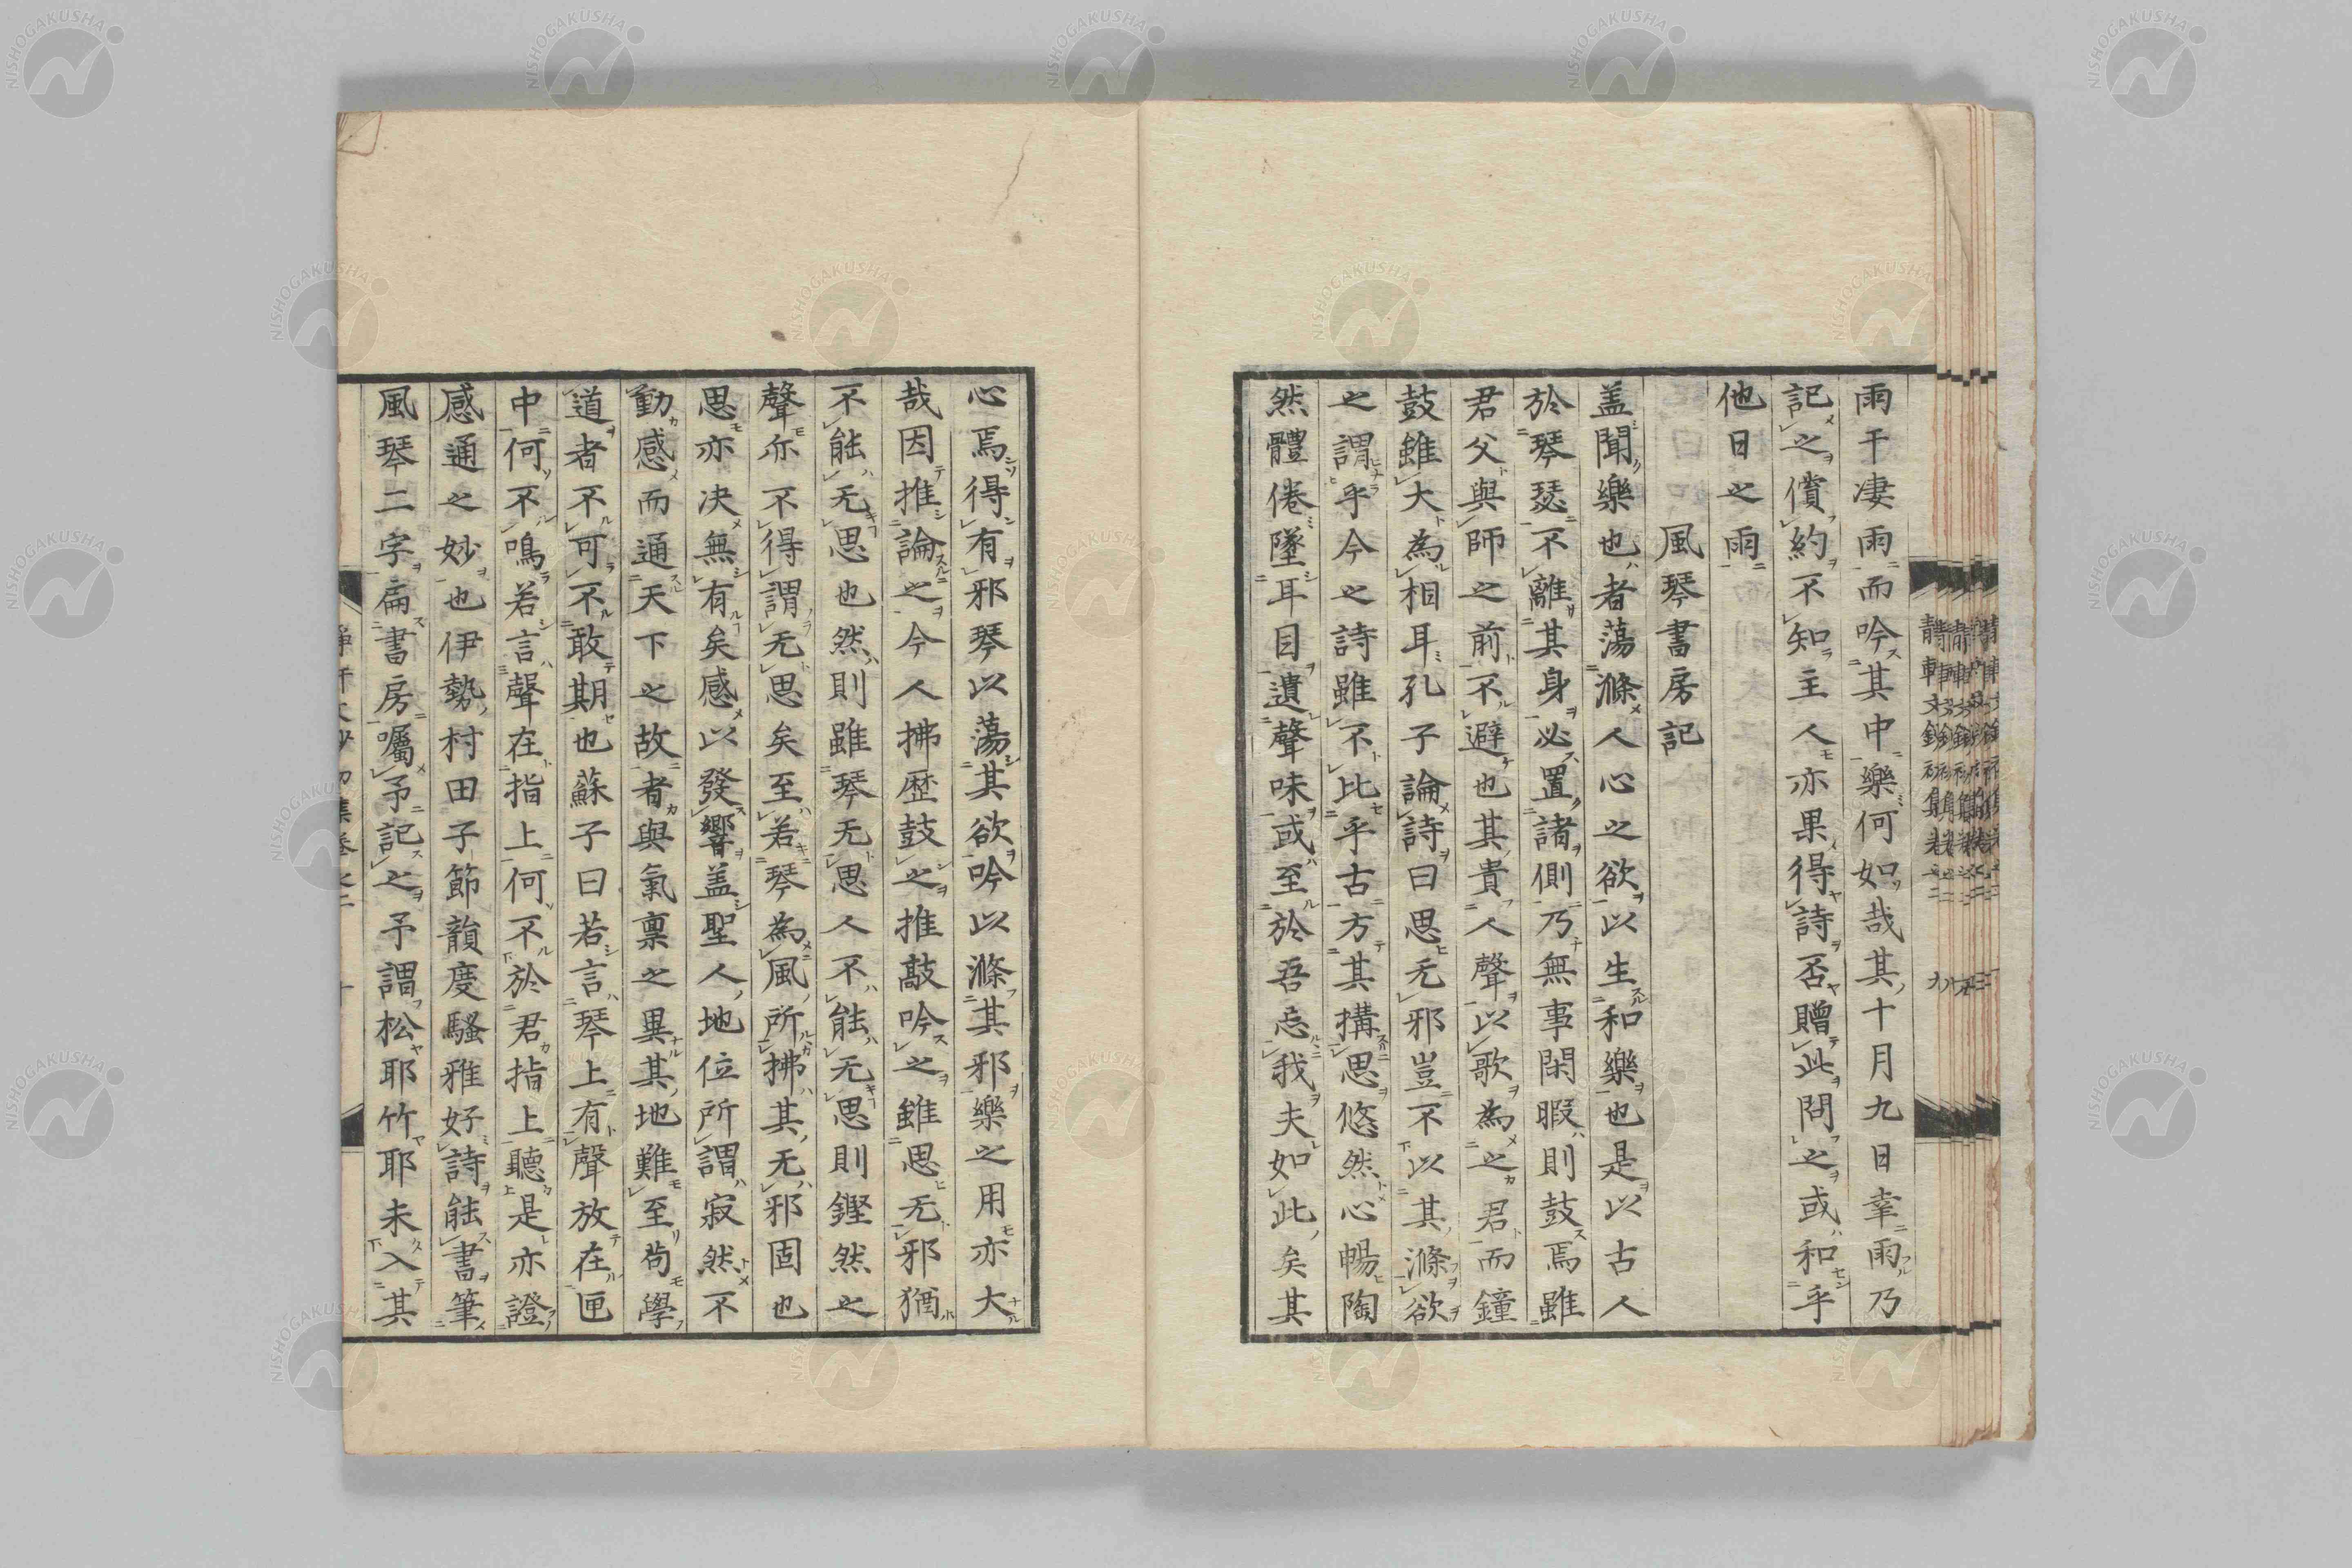 雨于凄雨而吟其中樂何如哉其十月九日幸雨乃
記之償約不知主人亦果得詩否贈此問之或和乎
他日之雨
風琴書房記
盖聞樂也者蕩滌人心之欲以生和樂也是以古人
於琴瑟不離其身必置諸側乃無事閑暇則鼓焉雖
君父與師之前不避也其貴人聲以歌為之君而鐘
鼓雖大為相耳孔子論詩曰思无邪豈不以其滌欲
之謂乎今之詩雖不比乎古方其搆思悠然心暢陶
然體倦墜耳目遺聲味或至於吾忘我夫如此矣其
心焉得有邪琴以蕩其欲吟以滌其邪樂之用亦大
哉因推論之今人拂歴鼓之推敲吟之雖思无邪猶
不能无思也然則雖琴无思人不能无思則鏗然之
聲亦不得謂无思矣至若琴為風所拂其无邪固也
思亦决無有矣感以發響盖聖人地位所謂寂然不
動感而通天下之故者與氣禀之異其地難至苟學
道者不可不敢期也蘇子曰若言琴上有聲放在匣
中何不鳴若言聲在指上何不於君指上聽是亦證
感通之妙也伊勢村田子節韻度騷雅好詩能書筆
風琴二字扁書房囑予記之予謂松耶竹耶未入其